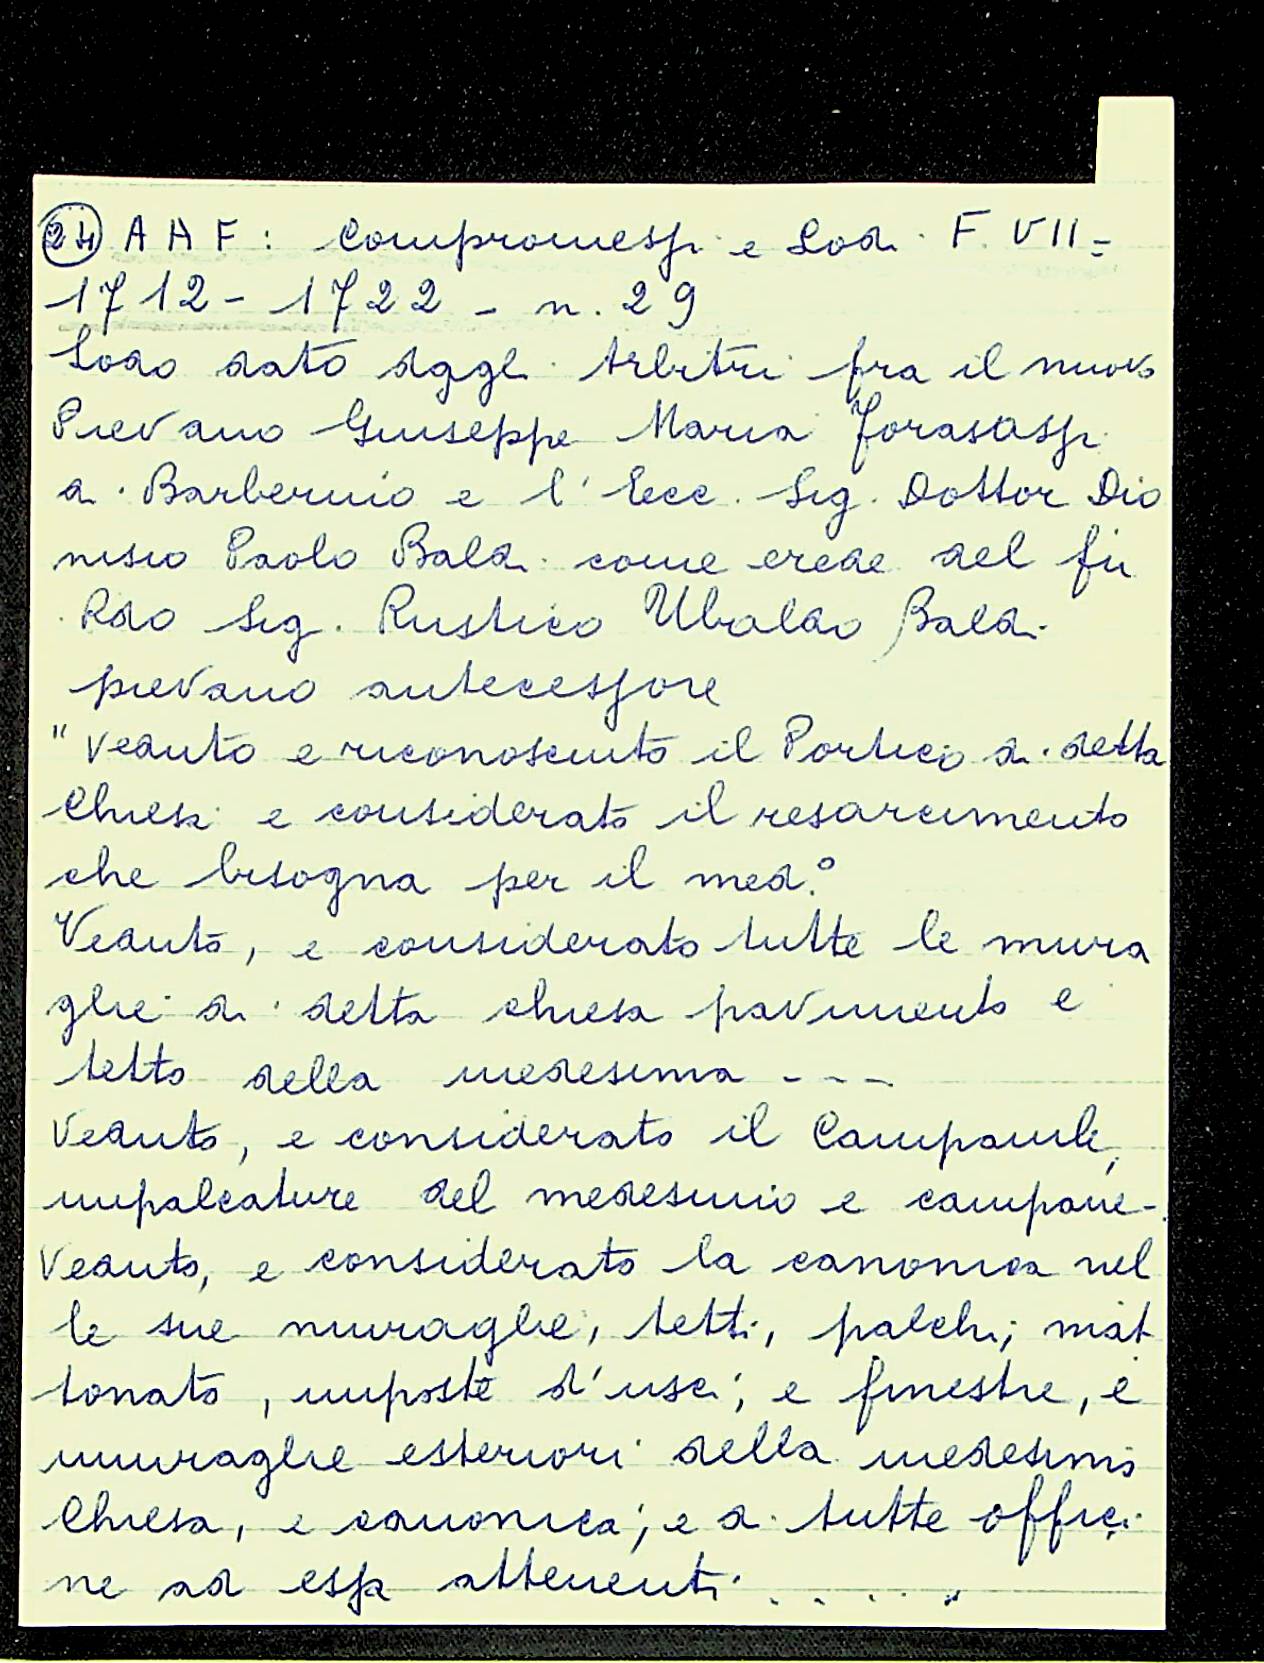 (24) A A F : Compromessi e Lodi F. VII =
1712 - 1722 - n. 29
Lodo dato dagli Arbitri fra il nuovo
Pievano Giuseppe Maria Forasassi
di Barberino e l' Ecc. Sig. Dottor Dio
nisio Paolo Baldi come erede del fù
Rdo Sig. Rustico Ubaldo Baldi
pievano antecessore
" Veduto e riconosciuto il Portico di detta
Chiesa e considerato il resarcimento
che bisogna per il med.°
Veduto, e considerato tutte le mura
glie di detta chiesa pavimento e
tetto della medesima - - -
Veduto, e considerato il Campanile,
impalcature del medesimo e campane -
Veduto, e considerato la canonica nel
le sue muraglie, tetti, palchi, mat
tonato, imposte d'usci, e finestre, e
muraglie esteriori della medesima
Chiesa, e canonica; e di tutte offici
ne ad essa attenenti . . . . .